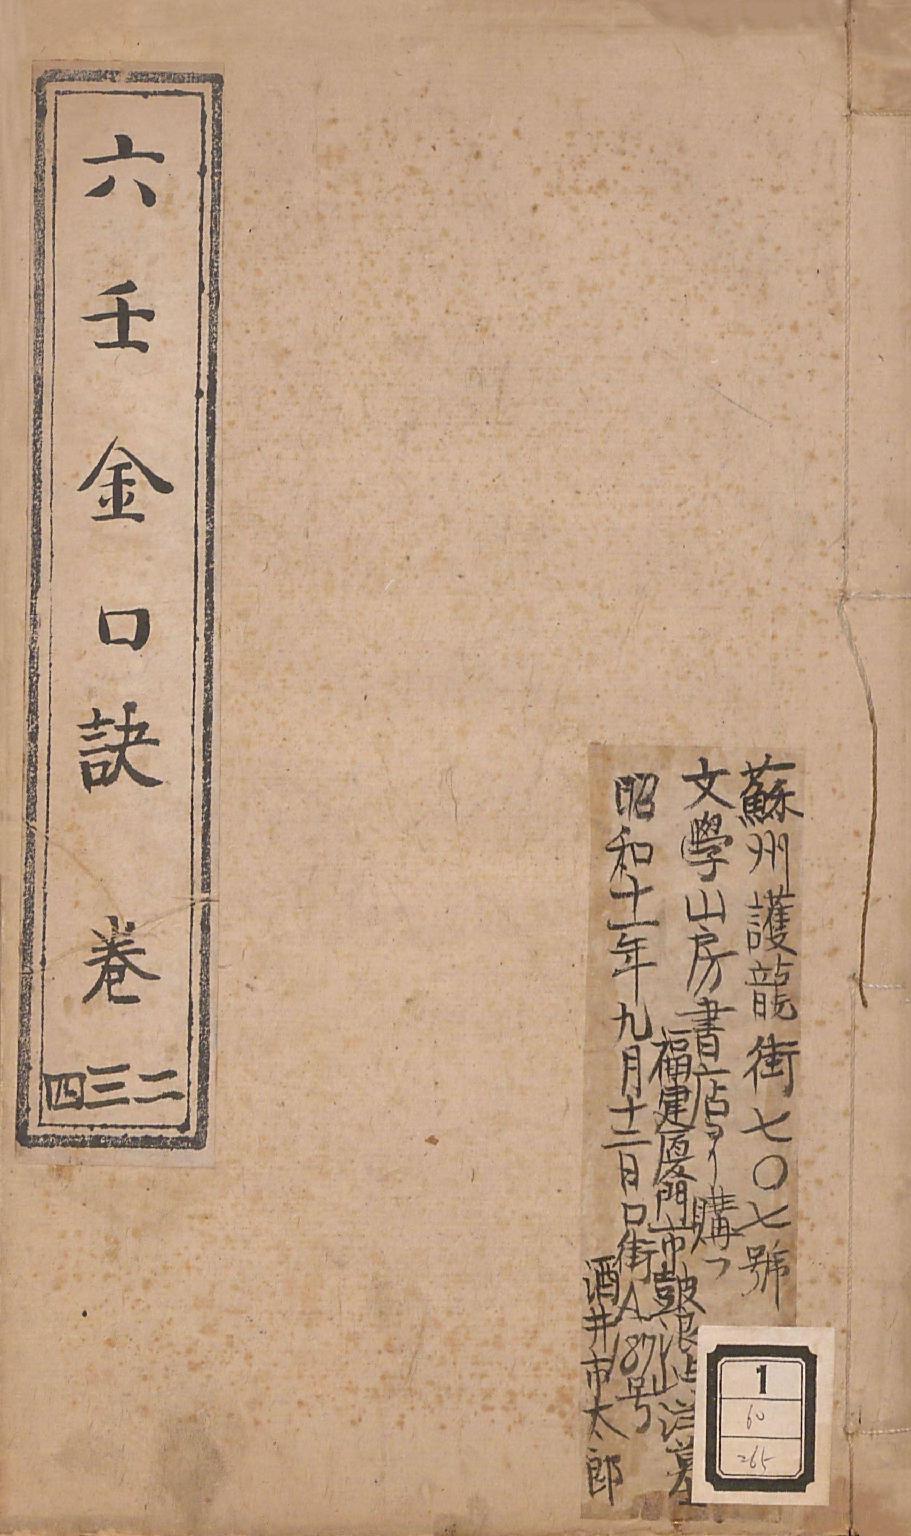 蘇州護龍街七〇七號
文學山房書店ヨリ購フ
昭和十一年九月十二日
福建厦門市鼓浪
口街A87号
酒井市太郎
1
60
265
六壬金口訣 卷二三四